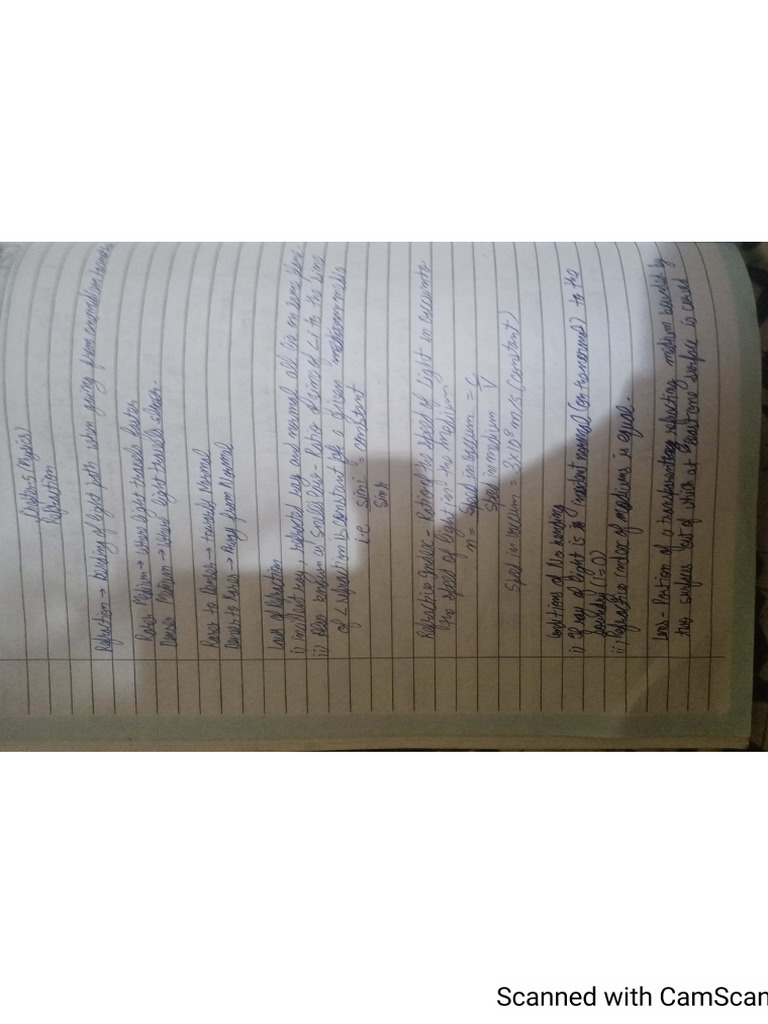 Chapter-5 (Physics)
Refraction
Refraction → Bending of light path when going from one medium to
Rarer Medium → where light travels faster
Denser Medium → where light travels slower.
Rarer to Denser → towards Normal
Denser to Rarer → Away from Normal
Laws of Refraction
i) incident ray, refracted ray and normal all lie on same plane
ii) Also known as Snell's law - Ratio of sine of ∠i to the sine
of ∠ refraction is constant for a given medium
i.e sin i = constant
sin r
Refractive Index - Ratio of the speed of light in vaccum to
the speed of light in the medium
n = Speed in vaccum = c
Speed in medium v
Speed in vaccum = 3×10⁸ m/s (constant)
Conditions of No bending
i) If ray of light is incident normal to the
boundary (i=0)
ii) Refractive index of mediums is equal.
Lens - Portion of a refracting medium bounded by
two surfaces out of which at least one surface is curved
Scanned with CamScan